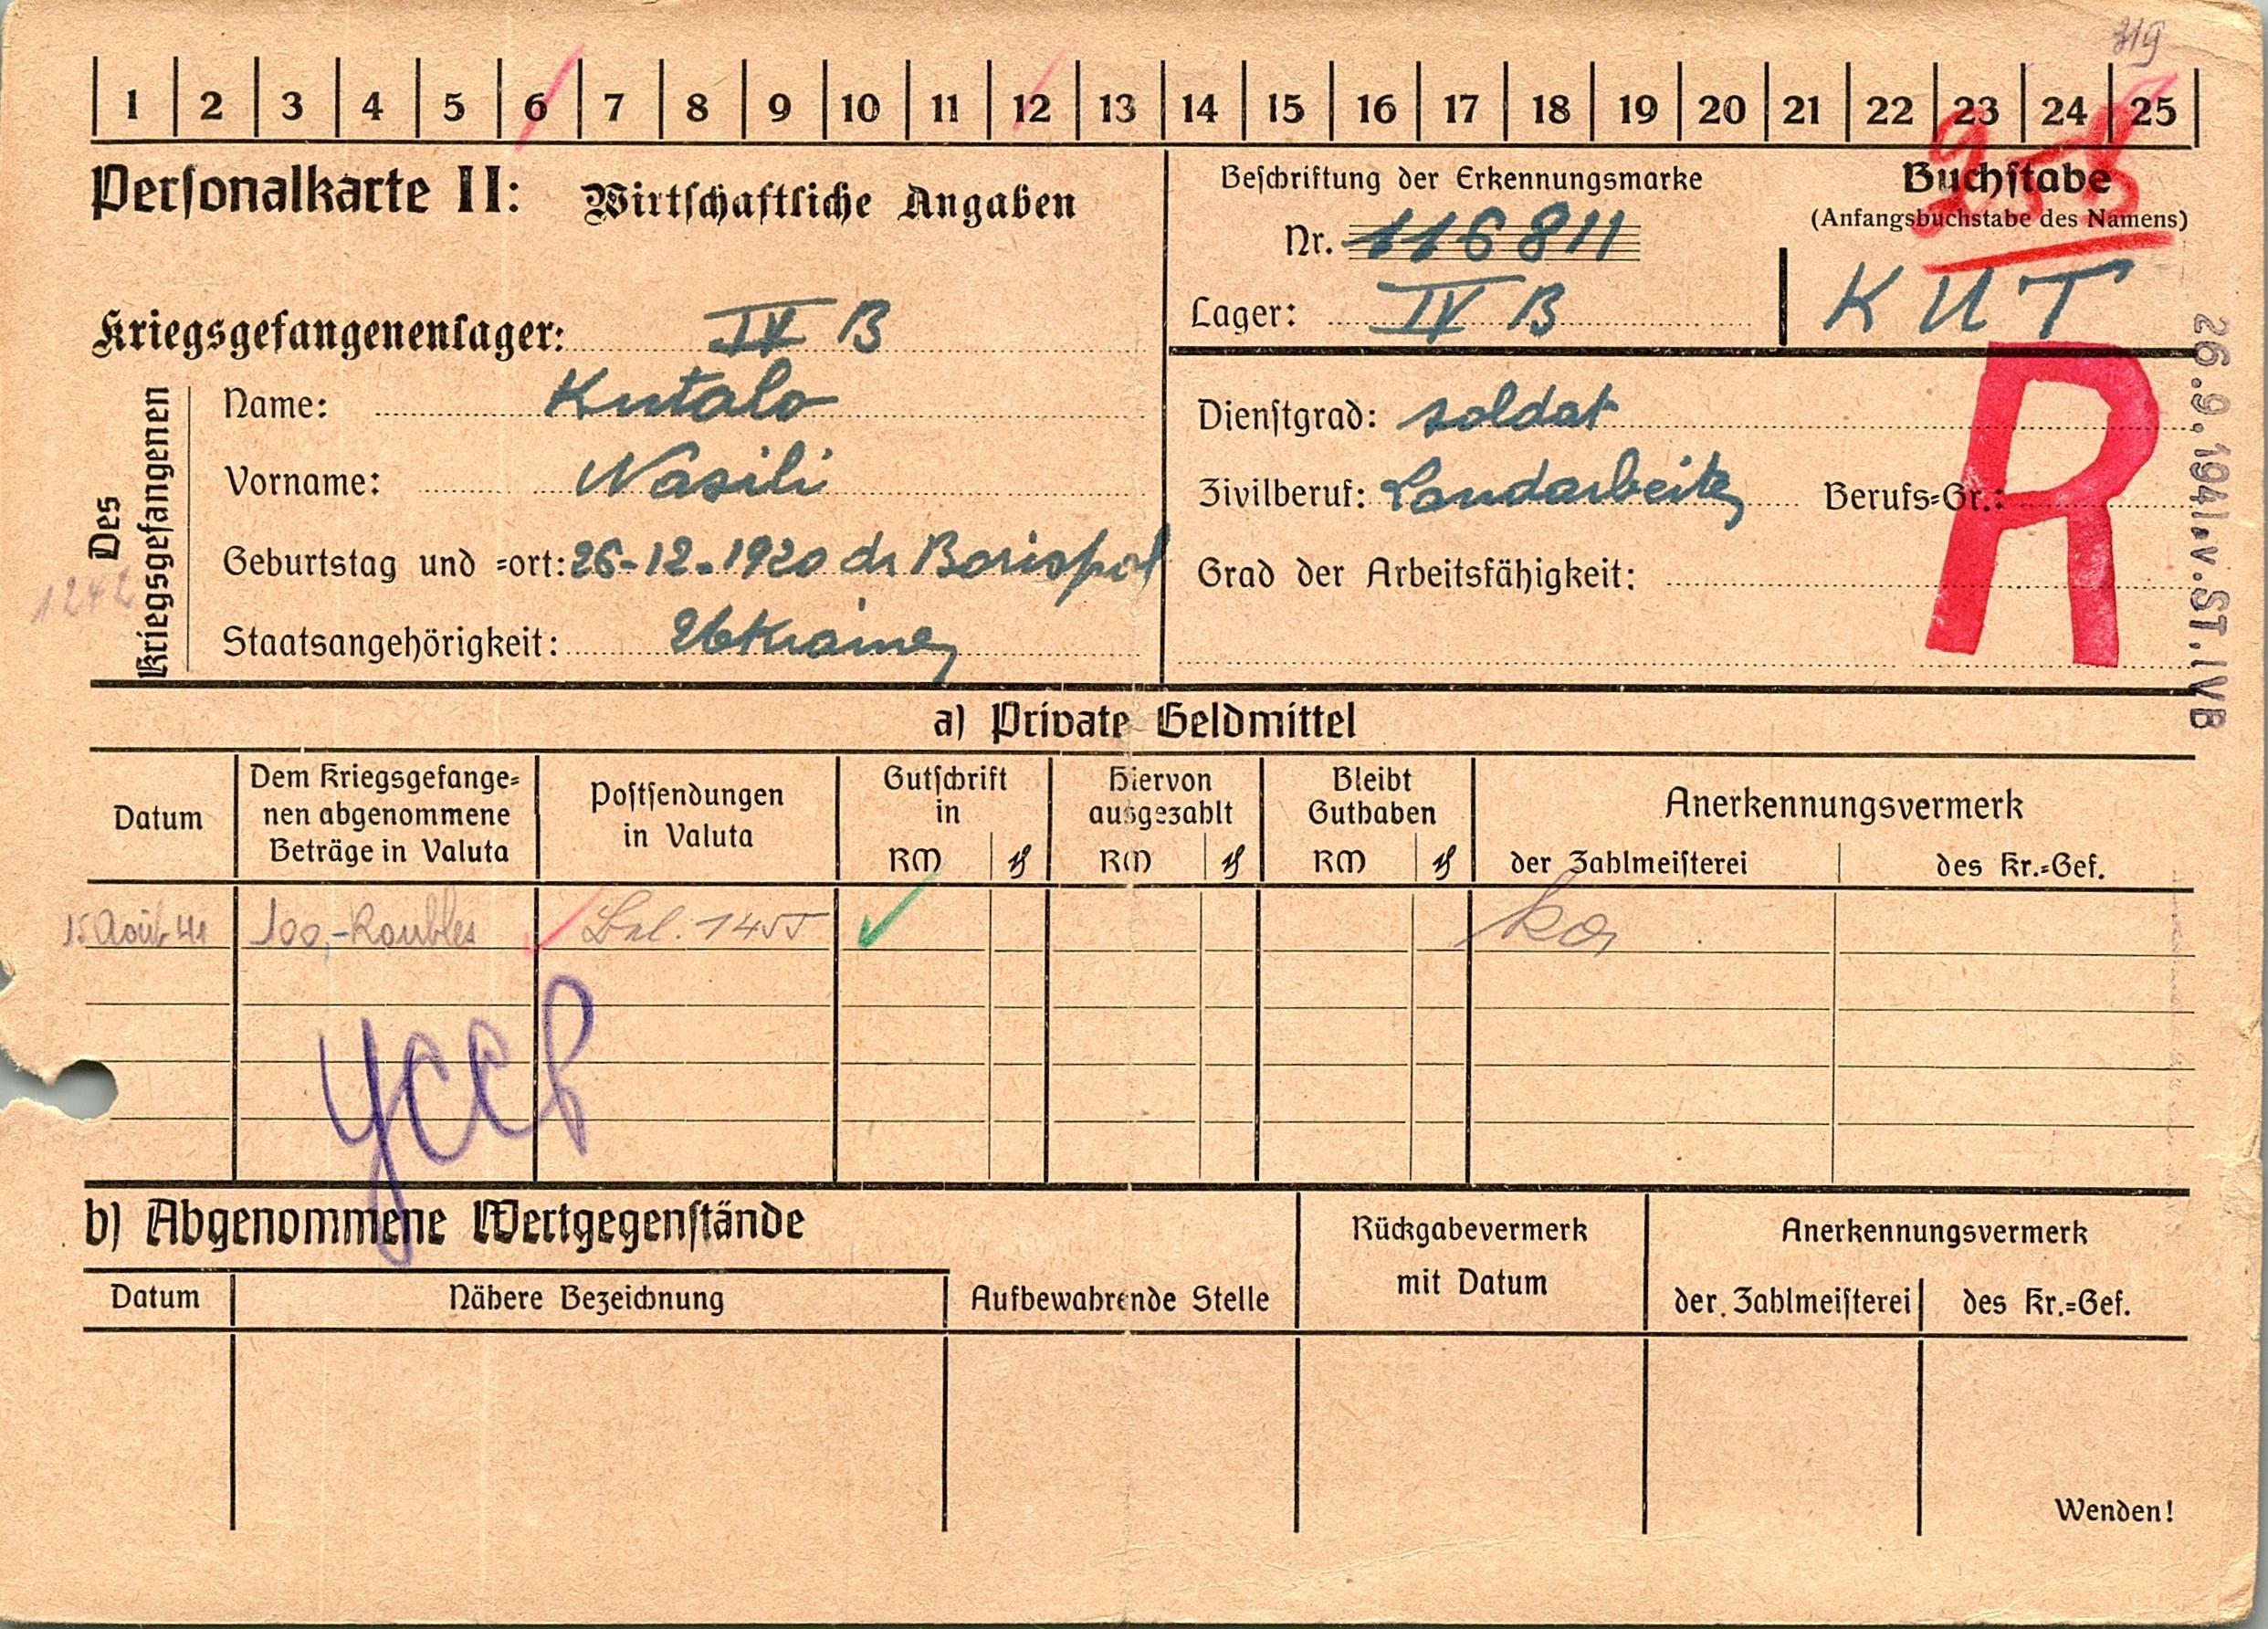 319
1 2 3 4 5 6 7 8 9 10 11 12 13 14 15 16 17 18 19 20 21 22 23 24 25
Personalkarte II: Wirtschaftliche Angaben
Beschriftung der Erkennungsmarke
Nr. 116811
Lager: IV B
Buchstabe
(Anfangsbuchstabe des Namens)
KUT
Kriegsgefangenenlager: IV B
Des Kriegsgefangenen
Name: Kutalo
Vorname: Wasili
Geburtstag und =ort: 26-12-1920 Borispol
Staatsangehörigkeit: Ukrainer
1242
Dienstgrad: soldat
Zivilberuf: Landarbeiter Berufs=Gr.:
Grad der Arbeitsfähigkeit:
R
26.9.1941.v.ST.IVB
a) Private Geldmittel
Datum
Dem Kriegsgefange=
nen abgenommene
Beträge in Valuta
Postsendungen
in Valuta
Gutschrift
in
RM ₰
Hiervon
ausgezahlt
RM ₰
Bleibt
Guthaben
RM ₰
Anerkennungsvermerk
der Zahlmeisterei des Kr.=Gef.
15 Août 41 100,- Roubles
УССР
b) Abgenommene Wertgegenstände
Datum Nähere Bezeichnung Aufbewahrende Stelle
Rückgabevermerk
mit Datum
Anerkennungsvermerk
der Zahlmeisterei des Kr.=Gef.
Wenden!